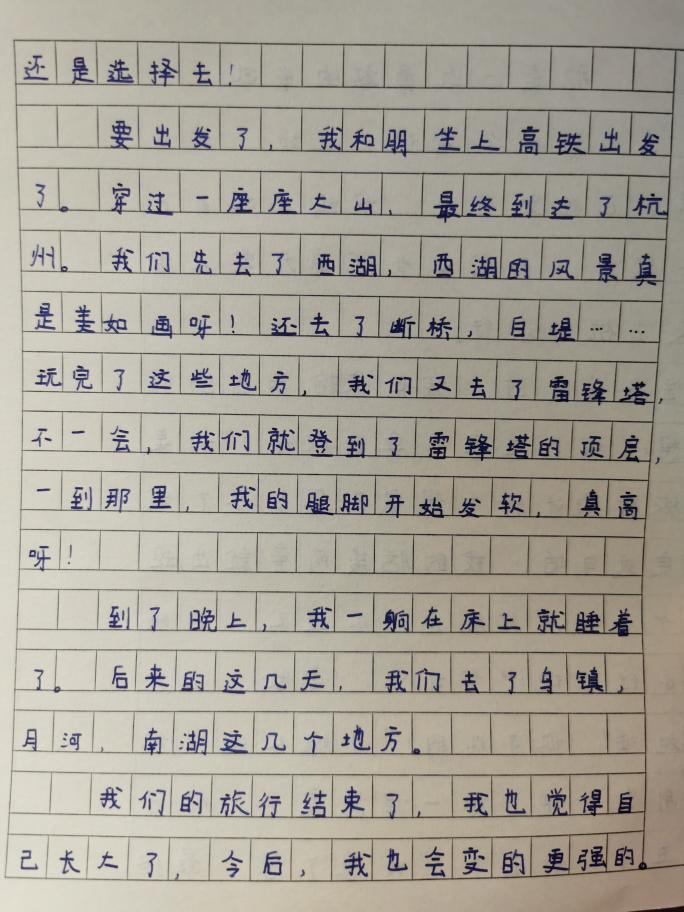 还是选择去！
要出发了，我和朋坐上高铁出发
了。穿过一座座大山，最终到达了杭
州。我们先去了西湖，西湖的风景真
是美如画呀！还去了断桥，白堤……
玩完了这些地方，我们又去了雷锋塔，
不一会，我们就登到了雷锋塔的顶层，
一到那里，我的腿脚开始发软，真高
呀！
到了晚上，我一躺在床上就睡着
了。后来的这几天，我们去了乌镇，
月河，南湖这几个地方。
我们的旅行结束了，我也觉得自
己长大了，今后，我也会变的更强的。